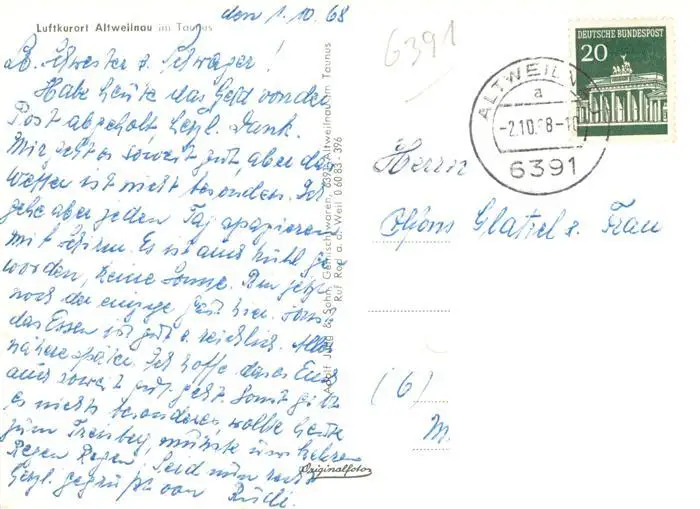 den 1.10.68
Luftkurort Altweilnau im Taunus
Lb. Schwester u. Schwager!
Habe heute das Geld von der
Post abgeholt herzl. Dank.
Mir geht es soweit gut aber das
Wetter ist nicht besonders. Ich
gehe aber jeden Tag spazieren
mit Schirm. Es ist auch kühl ge
worden, keine Sonne. Bin jetzt
noch der einzige Gast hier. Sonst
das Essen ist gut u. reichlich. Alles
nähere später. Ich hoffe dass es Euch
auch soweit gut geht. Sonst gibt
es nichts besonderes, wollte heute
zum musste umkehren
Regen Regen. Seid nun recht
herzl. gegrüßt von Rudi.
Adolf & Sohn, Gemischtwaren, 6391 Altweilnau im Taunus
Ruf Rod a. d. Weil 0 60 83 - 396
Originalfoto
6391
ALTWEILNAU
a
-2.10.68-1
6391
DEUTSCHE BUNDESPOST
20
Herrn
Alfons Glatzel u. Frau
(6)
M